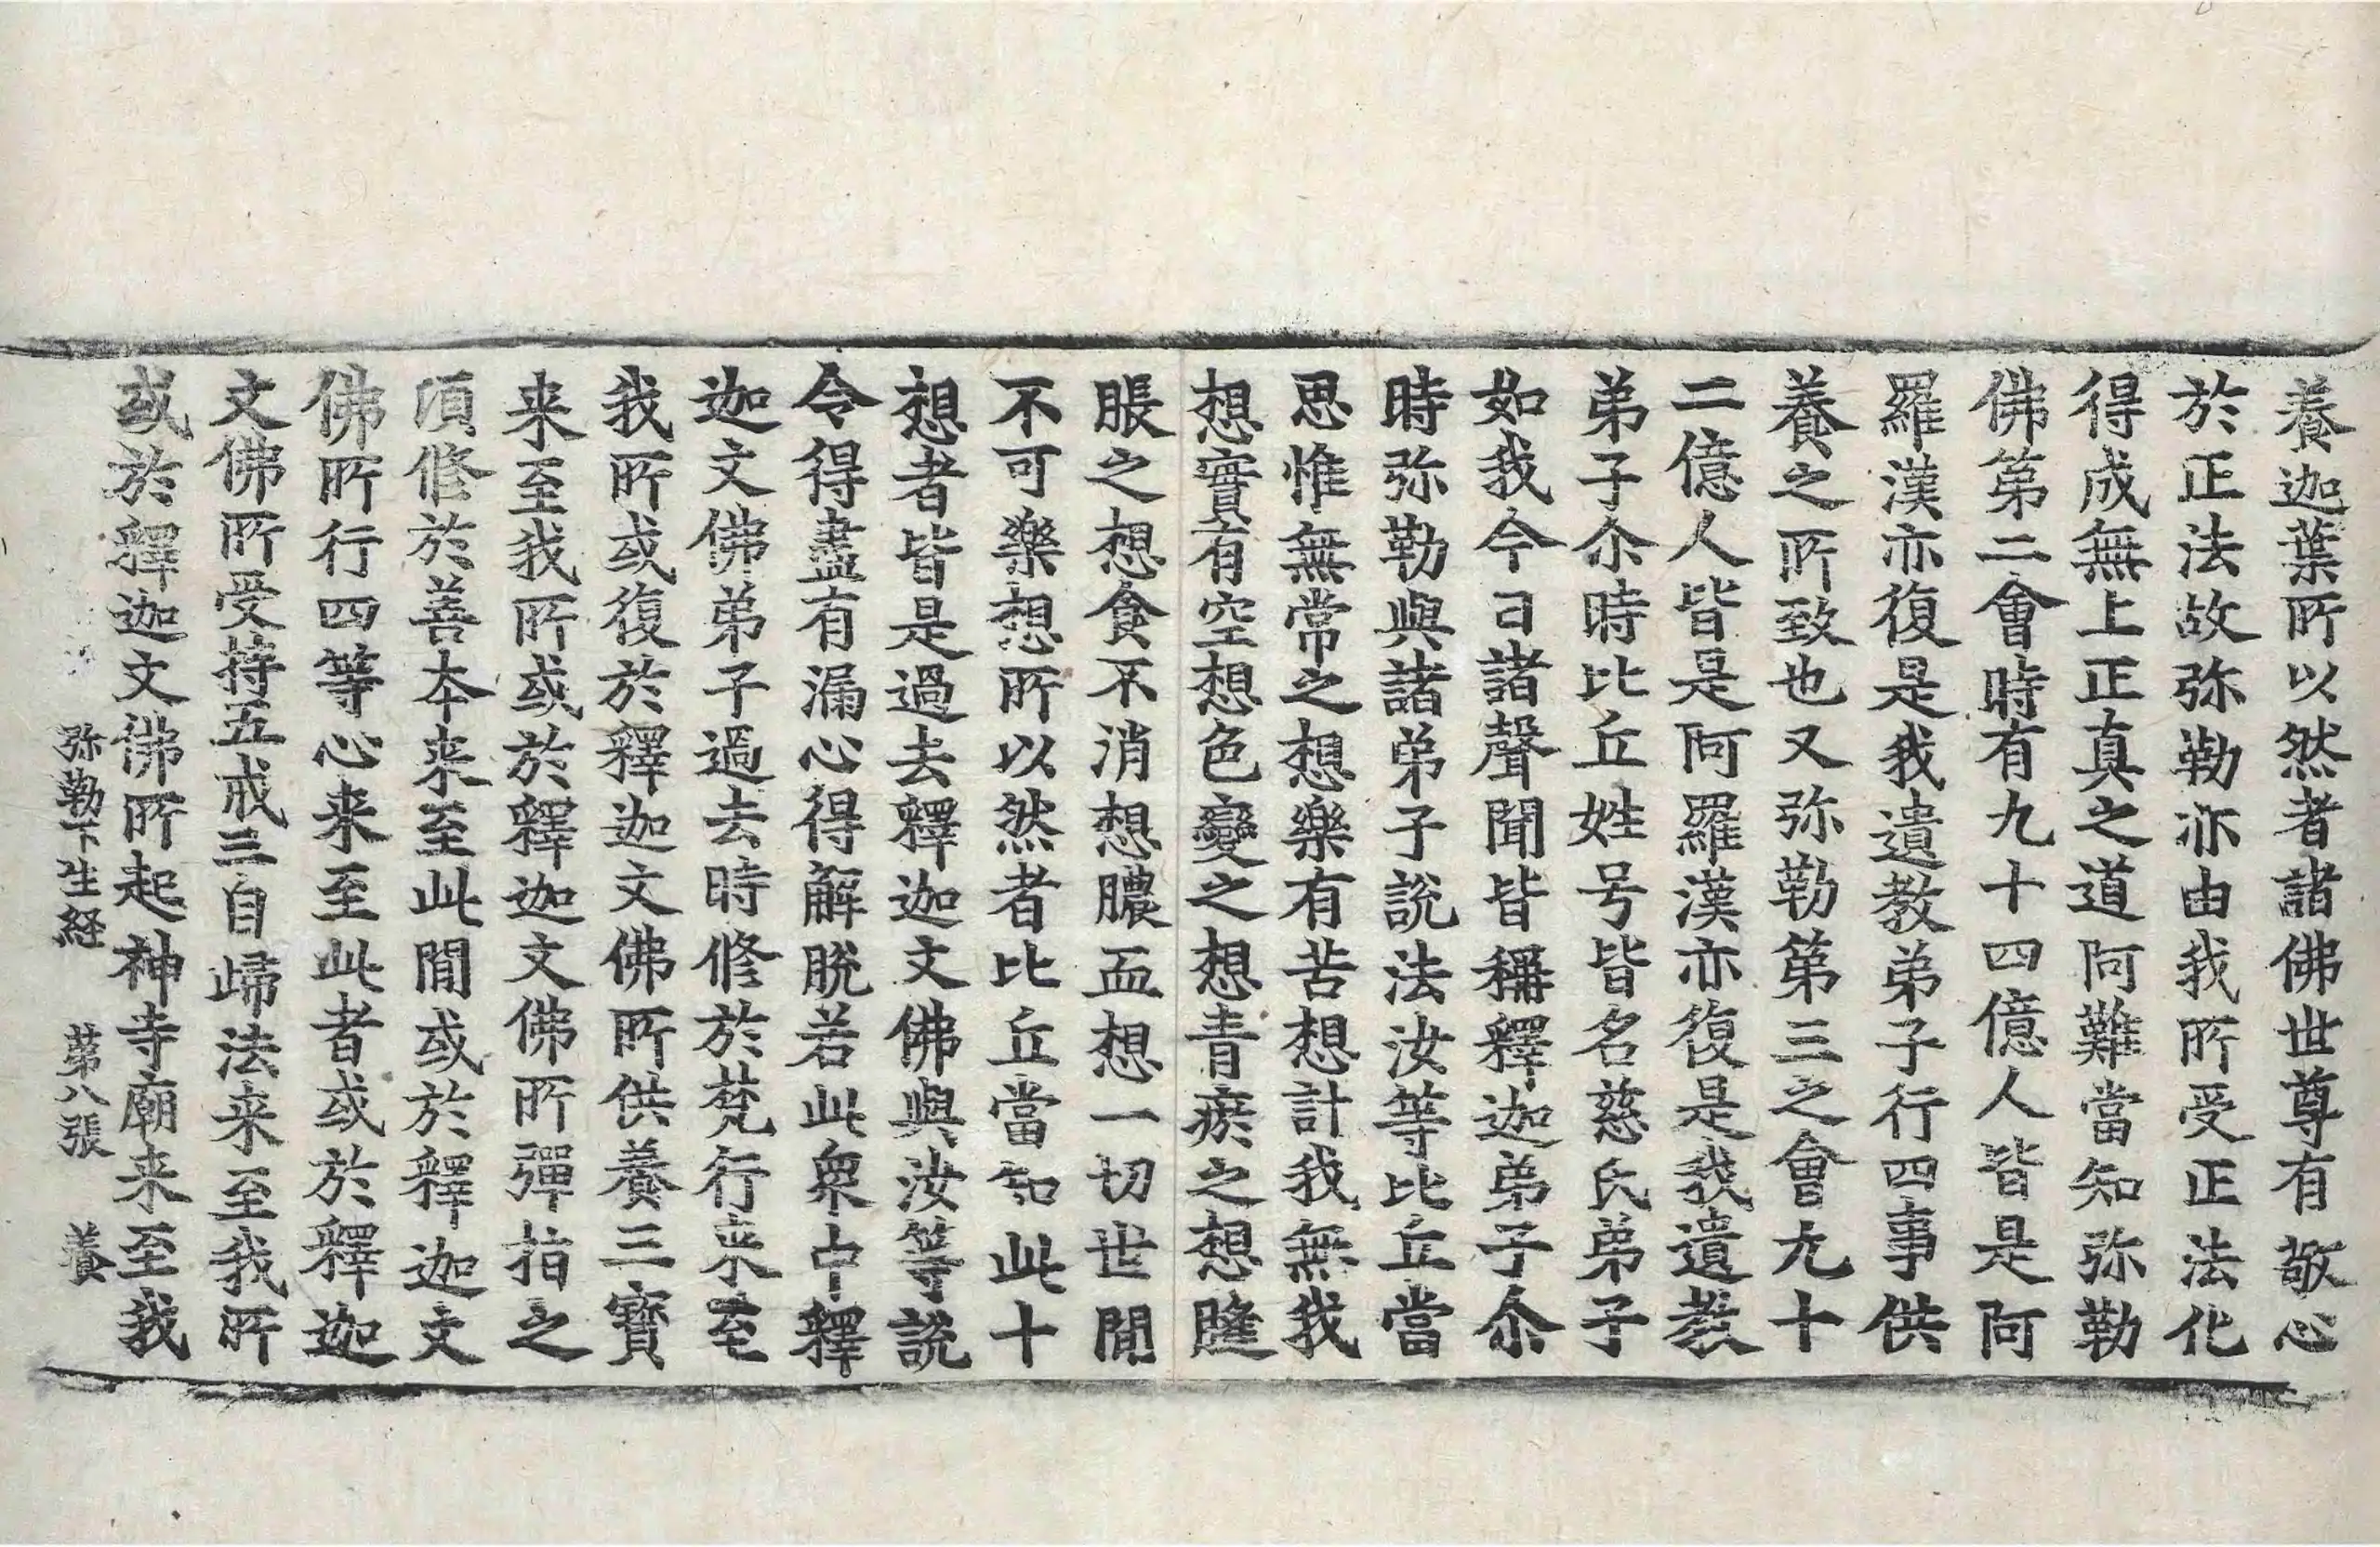 養迦葉所以然者諸佛世尊有敬心
於正法故弥勒亦由我所受正法化
得成無上正真之道阿難當知弥勒
佛第二會時有九十四億人皆是阿
羅漢亦復是我遺教弟子行四事供
養之所致也又弥勒第三之會九十
二億人皆是阿羅漢亦復是我遺教
弟子尒時比丘姓号皆名慈氏弟子
如我今日諸聲聞皆稱釋迦弟子尒
時弥勒與諸弟子說法汝等比丘當
思惟無常之想樂有苦想計我無我
想實有空想色變之想青瘀之想膖
脹之想食不消想膿血想一切世閒
不可樂想所以然者比丘當知此十
想者皆是過去釋迦文佛與汝等說
令得盡有漏心得解脫若此衆中釋
迦文佛弟子過去時修於梵行来至
我所或復於釋迦文佛所供養三寶
来至我所或於釋迦文佛所彈指之
頃修於善本来至此閒或於釋迦文
佛所行四等心来至此者或於釋迦
文佛所受持五戒三自歸法来至我所
或於釋迦文佛所起神寺廟来至我
弥勒下生経 第八張 養